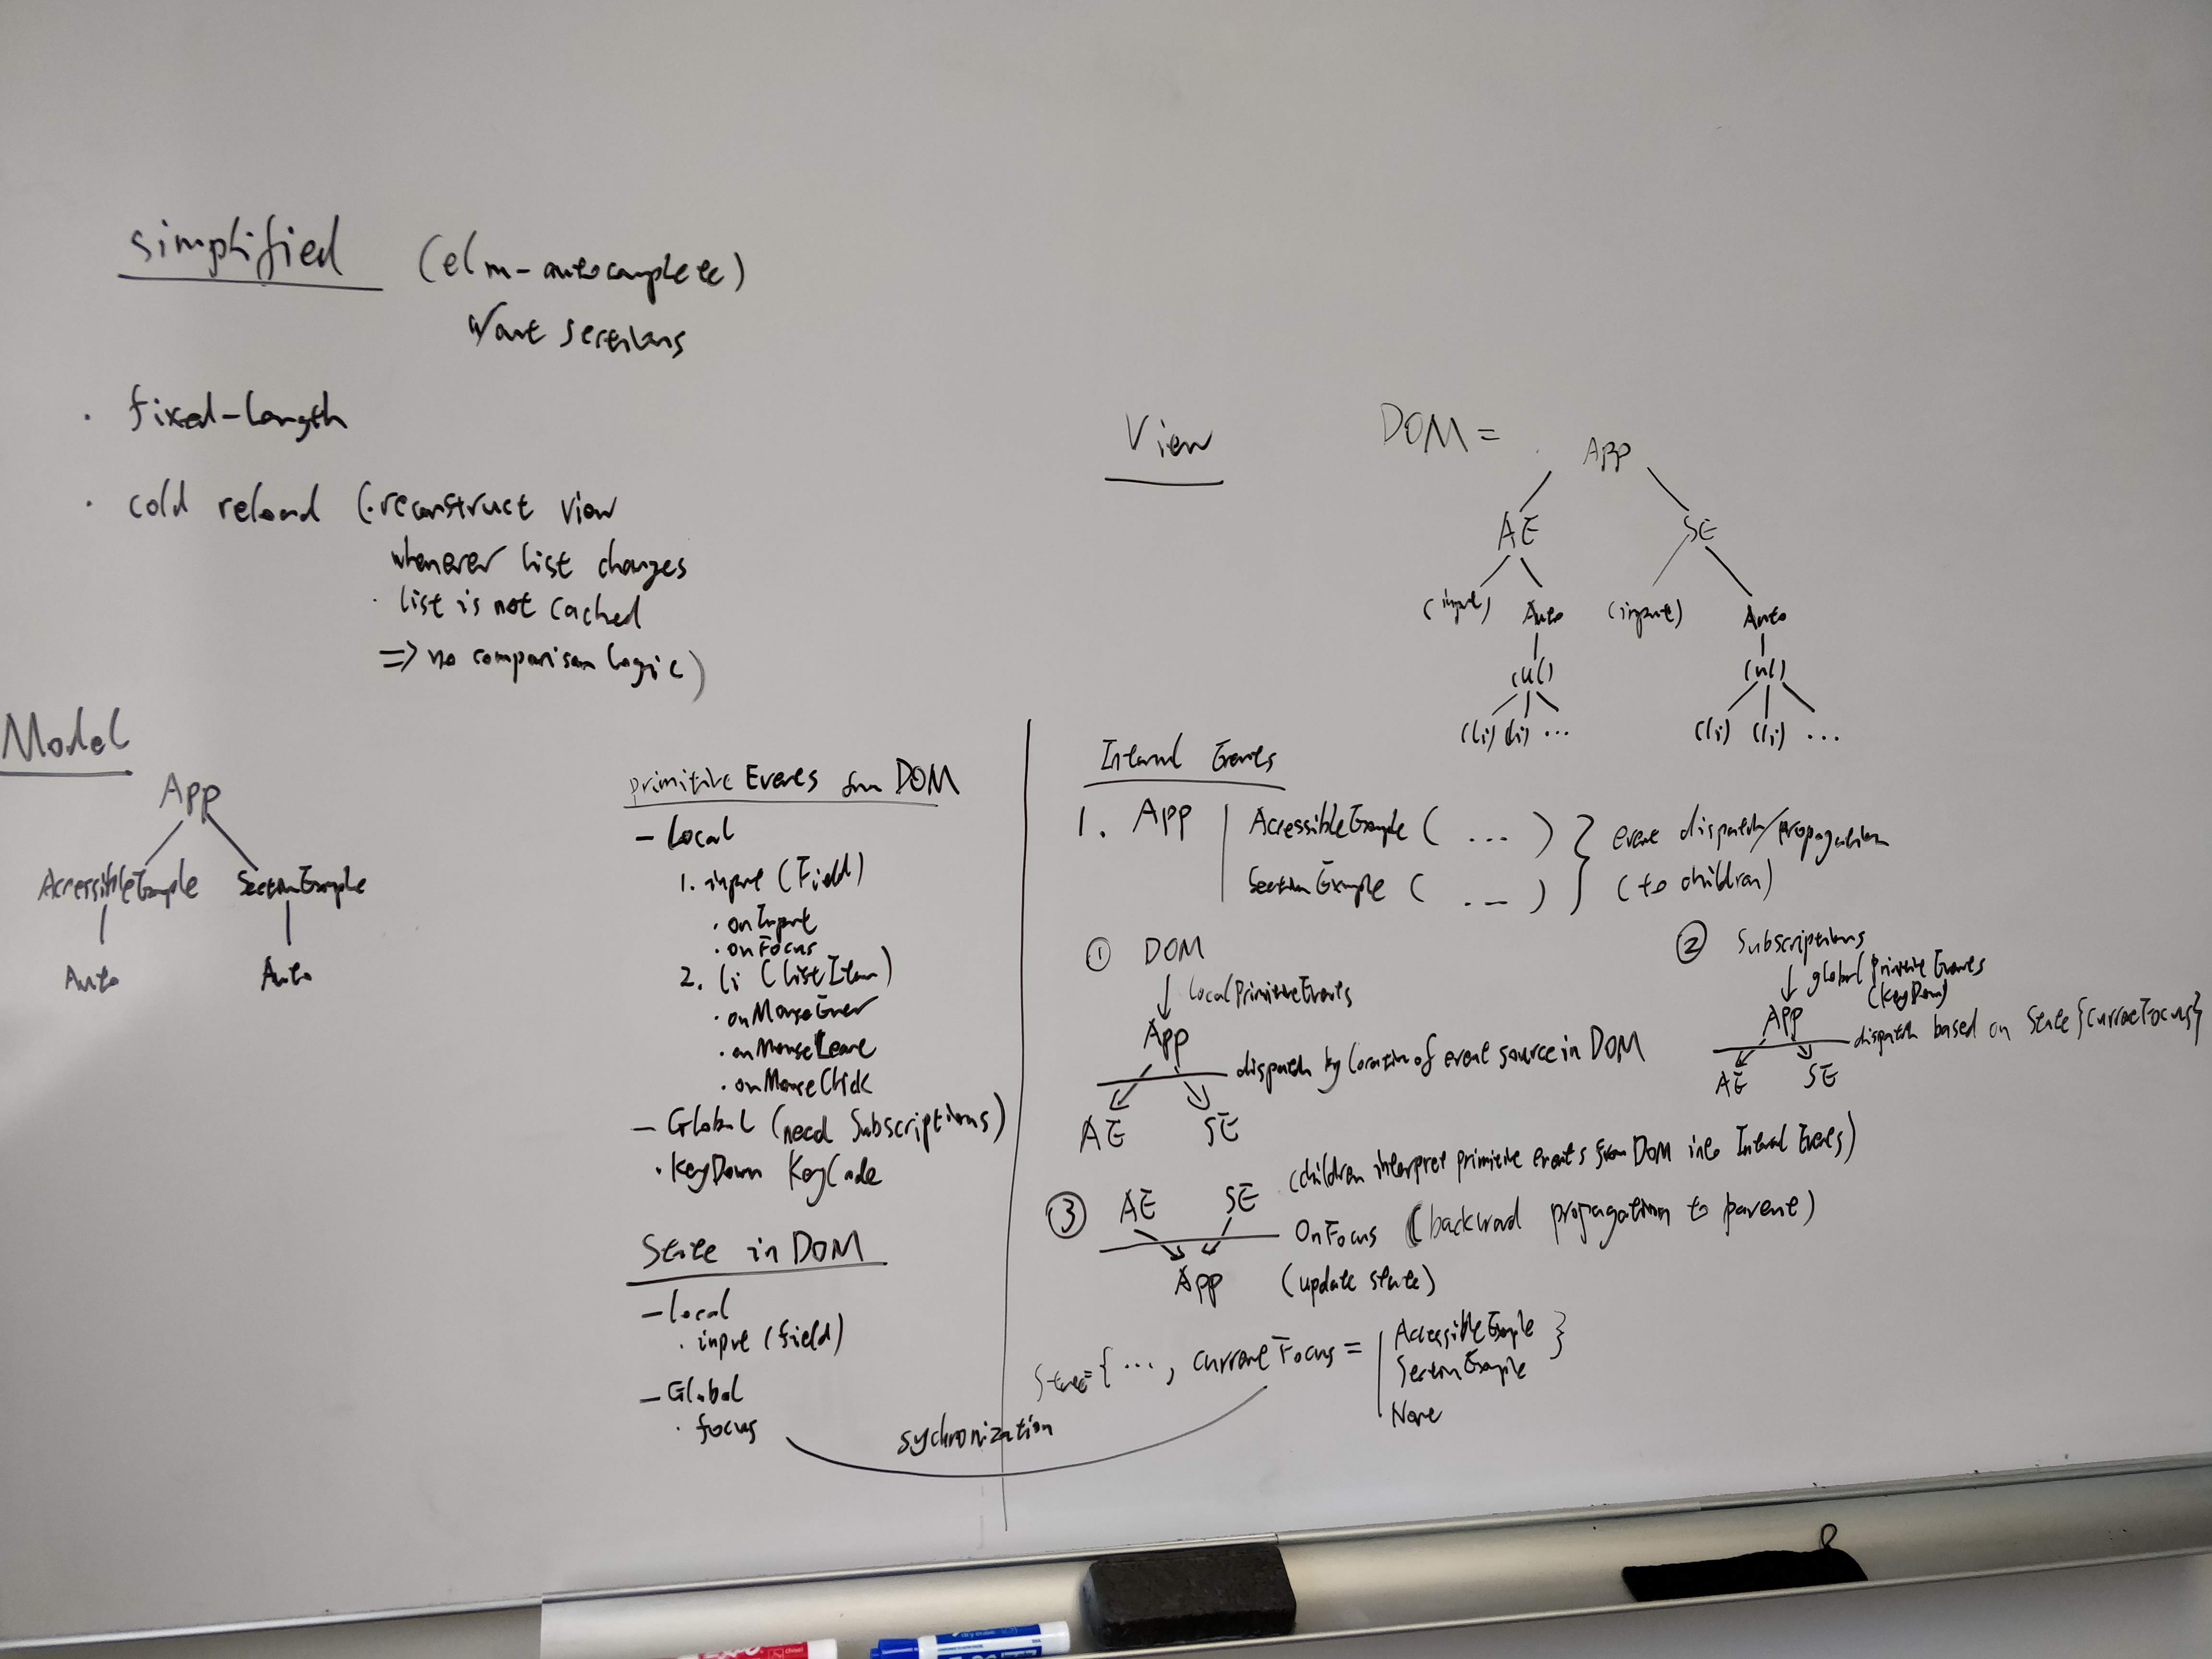 simplified (elm-autocomplete)
Want sections
· fixed-length
· cold reload (·reconstruct view
whenever list changes
· list is not cached
=> no comparison logic)
Model
App
AccessibleExample SectionExample
Auto Auto
primitive Events from DOM
- Local
1. input (Field)
· onInput
· onFocus
2. li (listItem)
· onMouseEnter
· onMouseLeave
· onMouseClick
- Global (need Subscriptions)
· KeyDown KeyCode
State in DOM
- local
· input (field)
- Global
· focus
sychronization
View
DOM = App
AE SE
(input) Auto (input) Auto
(ul) (ul)
(li) (li) ... (li) (li) ...
Internal Events
1. App | AccessibleExample ( ... ) } event dispatch/propagation
SectionExample ( ... ) (to children)
① DOM
↓ local Primitive Events
App
dispatch by location of event source in DOM
AE SE
② Subscriptions
↓ global Primitive Events
(KeyDown)
App
dispatch based on State {currentFocus}
AE SE
(children interpret primitive events from DOM into Internal Events)
③ AE SE
OnFocus (backward propagation to parent)
App (update state)
State = { ..., currentFocus = | AccessibleExample }
SectionExample
None
EXPO